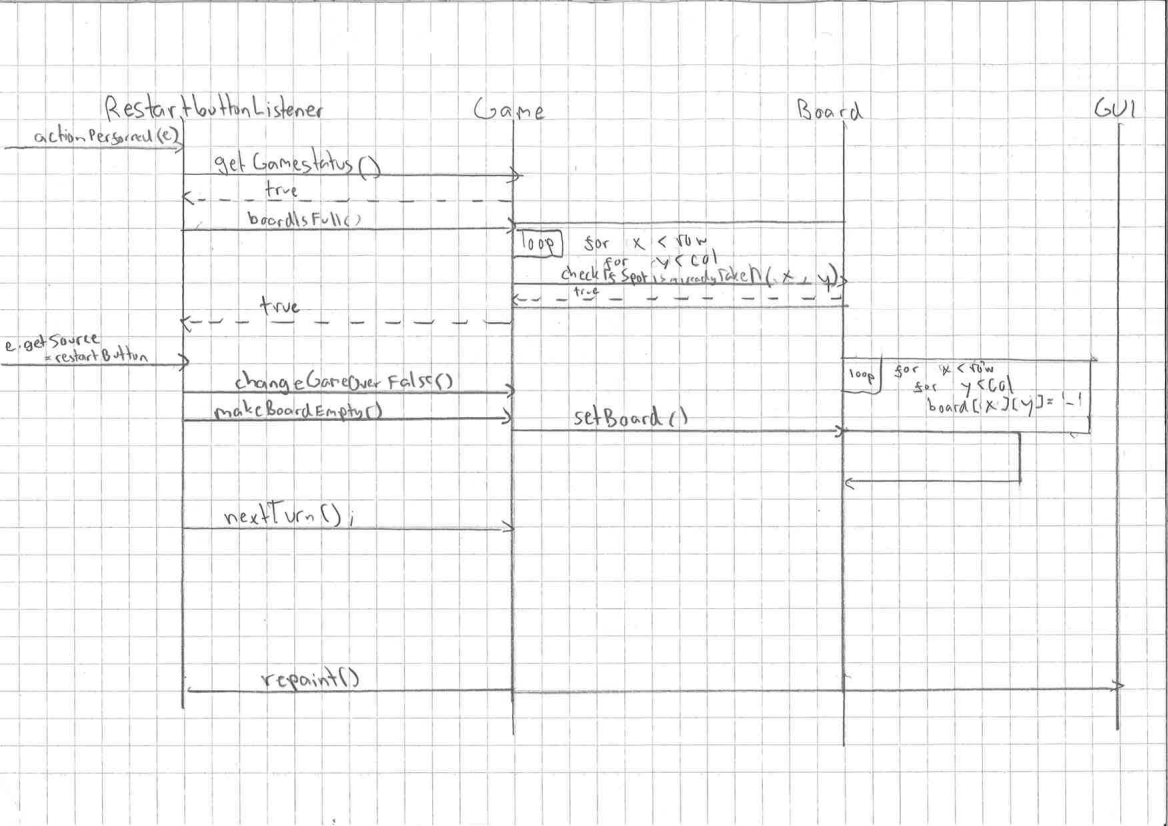 RestartbuttonListener
Game
Board
GUI
actionPerformed(e)
getGamestatus()
true
boardIsFull()
loop
for x < row
for y < col
checkIfSpotisalreadyTaken(x, y)
true
true
e.getSource
= restartButton
changeGameOverFalse()
makeBoardEmpty()
setBoard()
loop
for x < row
for y < Col
board[x][y] = '-'
nextTurn();
repaint()